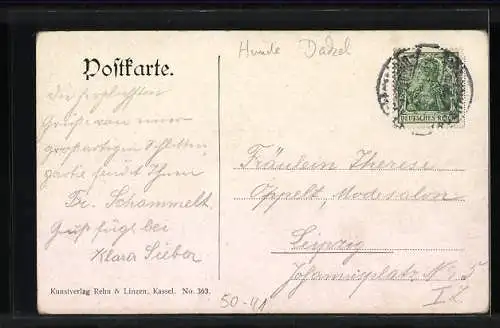 Hunde Dackel
Postkarte.
DEUTSCHES REICH
Die herzlichsten
Grüße von einer
großartigen Schlitten
partie sendt Ihnen
Fr. Schammelt.
Gruß fügt bei
Klara Sieber
Fräulein Therese
Oppelt, Modesalon
Leipzig
Johannisplatz No 5
I Z
Kunstverlag Rehn & Linzen, Kassel. No. 363.
50-41